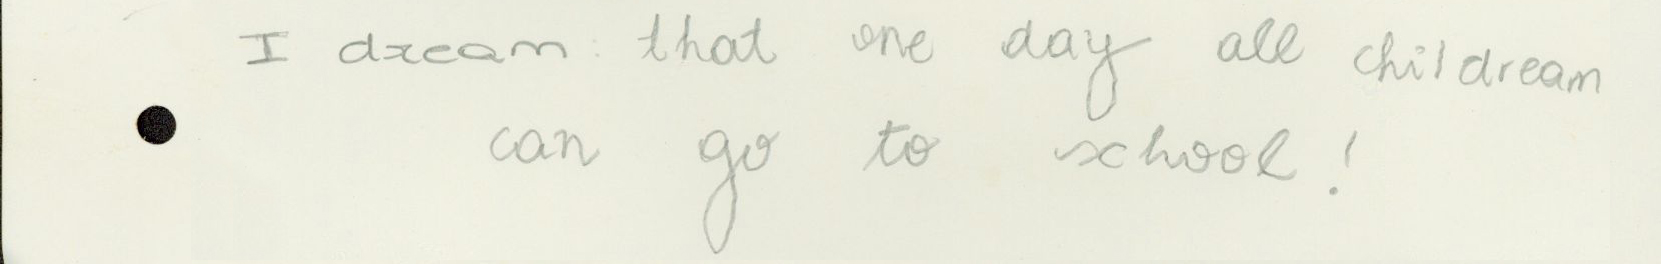 I dream: that one day all childream
can go to school!